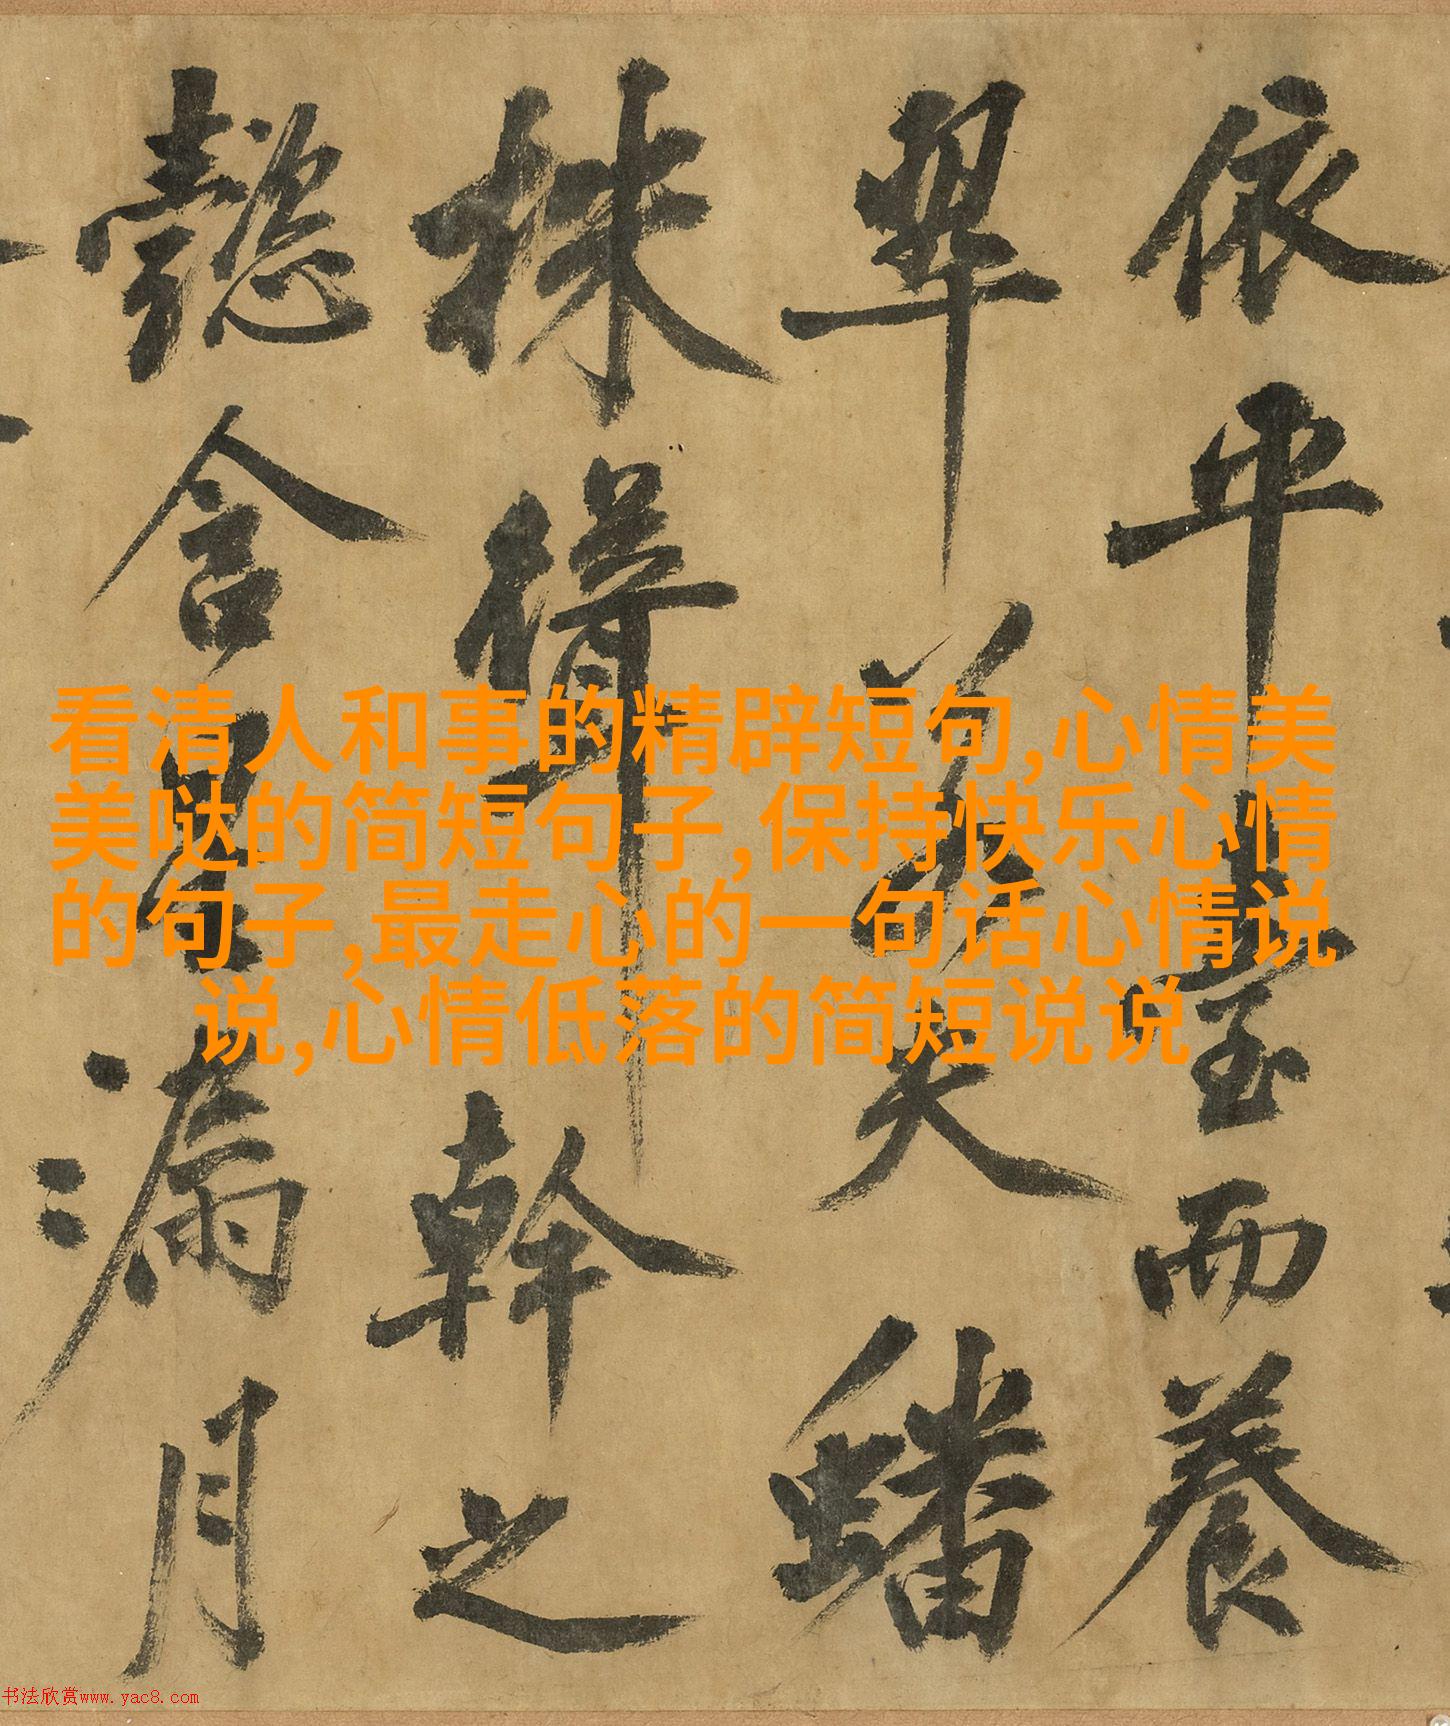 依平臺而養
翠若夫蟠
株聳幹之
懿含星漏月
看清人和事的精辟短句,心情美
美哒的简短句子,保持快乐心情
的句子,最走心的一句话心情说
说,心情低落的简短说说
书法欣赏www.yac8.com